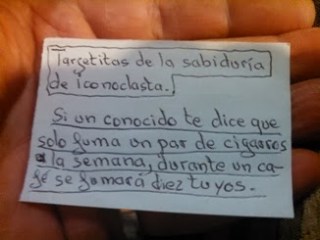 Targetitas de la sabiduría
de iconoclasta.
Si un conocido te dice que
solo fuma un par de cigarros
a la semana, durante un ca-
fé se fumará diez tuyos.